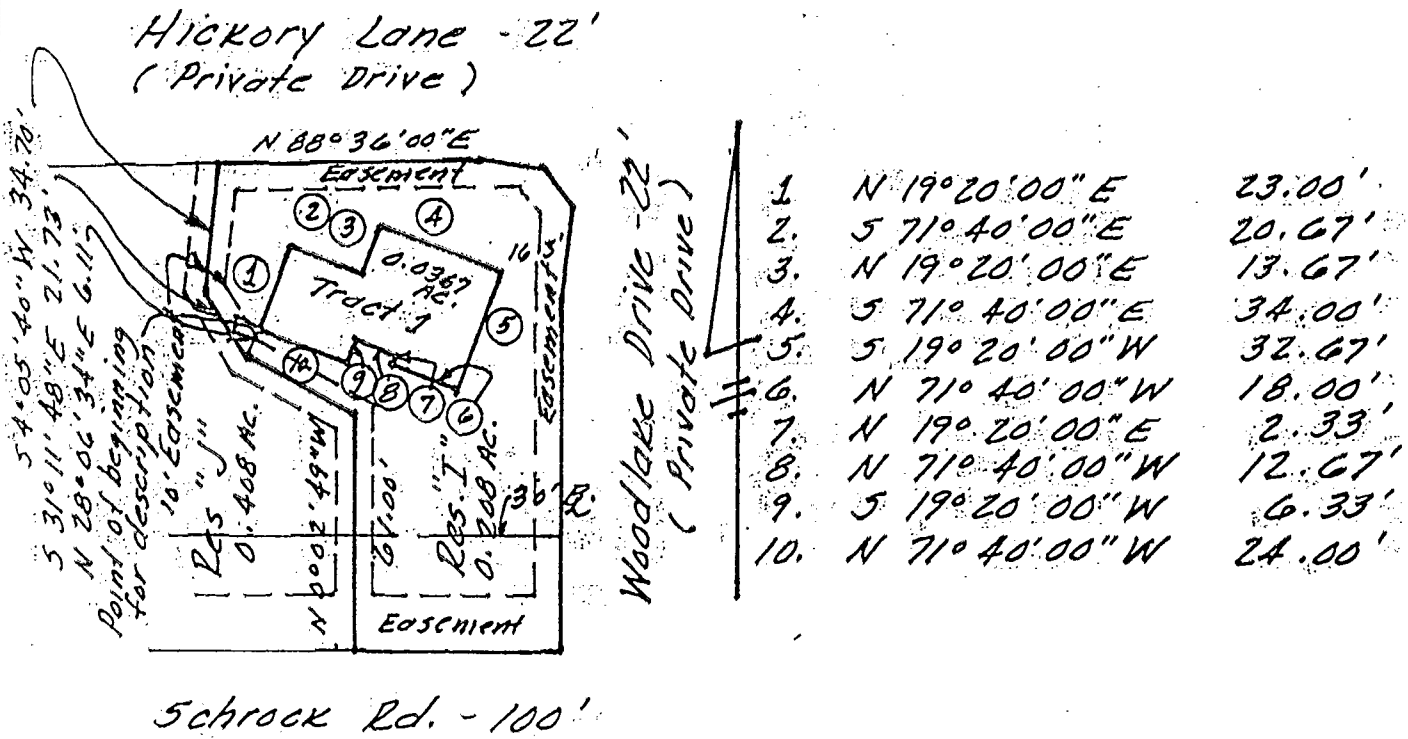 Hickory Lane - 22'
( Private Drive )
N 88° 36' 00" E
Easement
S 4° 05' 40" W 34.70'
S 31° 11' 48" E 21.73'
N 28° 06' 34" E 6.11'
Point of beginning
for description
10' Easement
1
2
3
4
5
6
7
8
9
10
16'
0.0367
AC.
Tract 1
Easement
Res "J"
0.408 AC.
N 0° 02' 49" W
61.00'
Res. "I"
0.208 AC.
30' B.L.
Easement
Woodlake Drive - 22'
( Private Drive )
1 N 19° 20' 00" E 23.00'
2. S 71° 40' 00" E 20.67'
3. N 19° 20' 00" E 13.67'
4. S 71° 40' 00" E 34.00'
5. S 19° 20' 00" W 32.67'
6. N 71° 40' 00" W 18.00'
7. N 19° 20' 00" E 2.33'
8. N 71° 40' 00" W 12.67'
9. S 19° 20' 00" W 6.33'
10. N 71° 40' 00" W 24.00'
Schrock Rd. - 100'